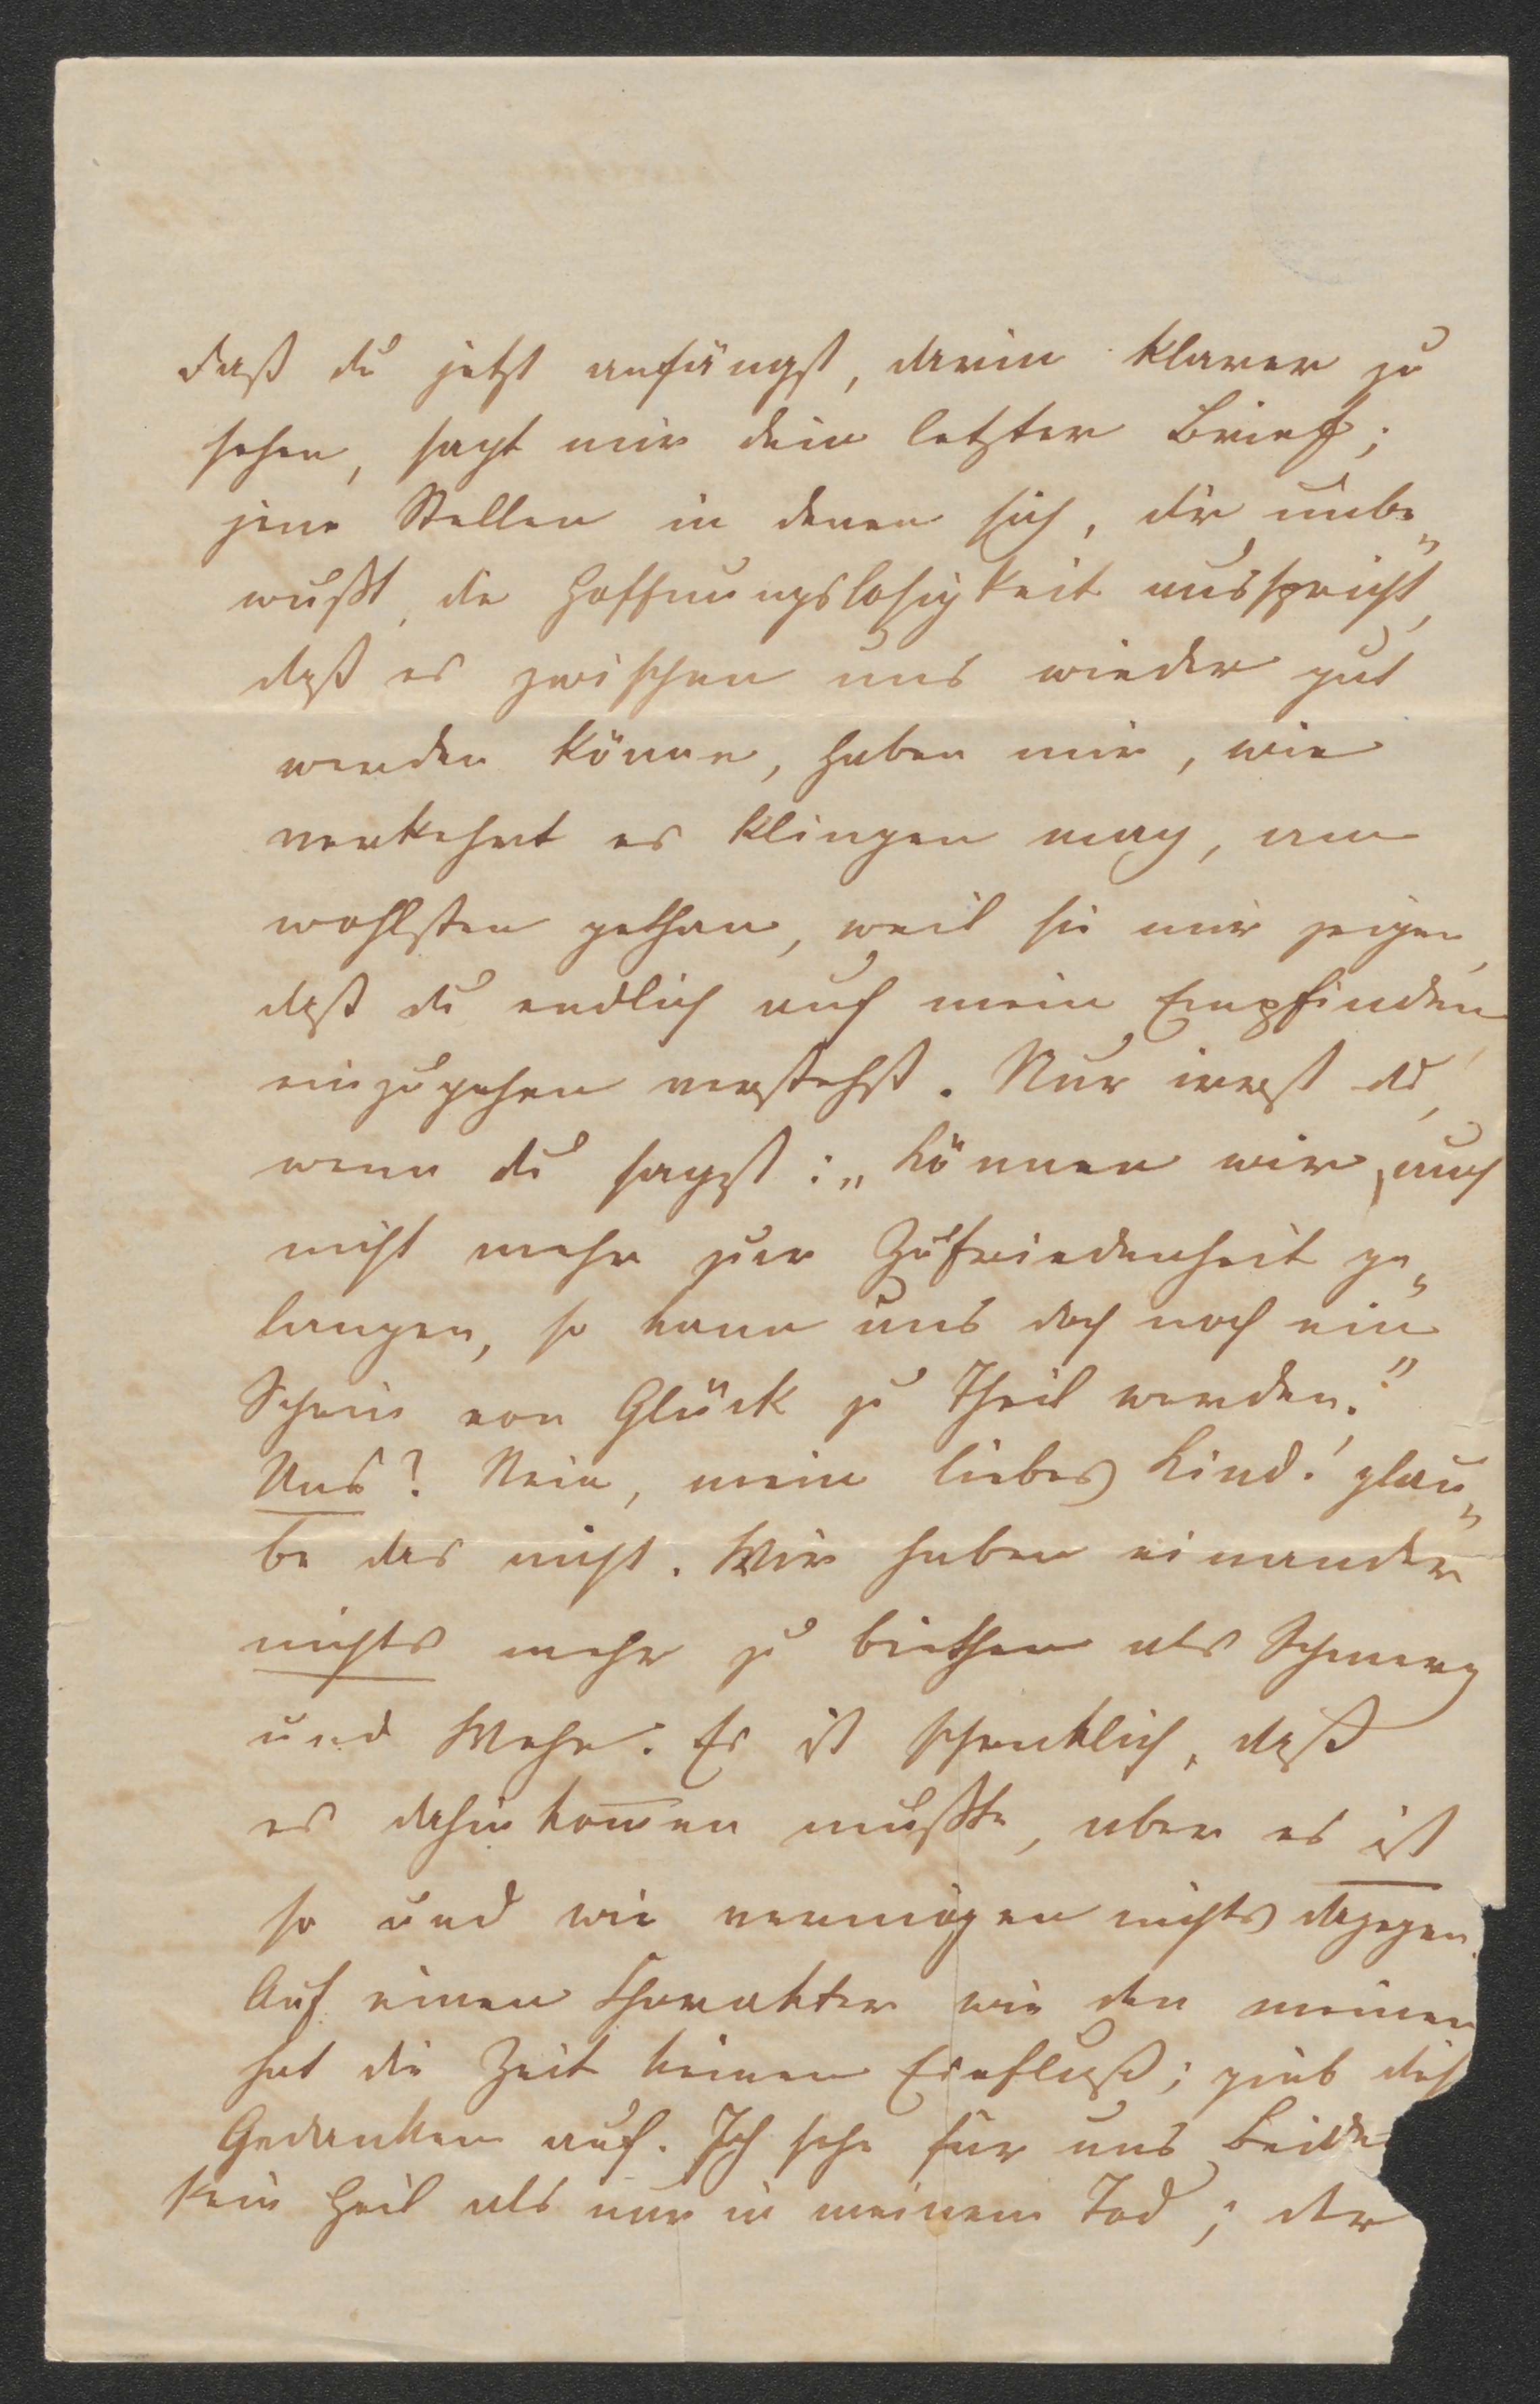 daß du jetzt anfängst, darin klarer zu
sehen, sagt mir dein letzter Brief;
jene Stellen in denen sich, dir unbe„
wußt, die Hoffnungslosigkeit ausspricht,
daß es zwischen uns wieder gut
werden könne, haben mir, wie
verkehrt es klingen mag, am
wohlsten gethan, weil sie mir zeigen,
daß du endlich auf mein Empfinden
einzugehen verstehst. Nur irrst du,
wenn du sagst: „Können wir auch
nicht mehr zur Zufriedenheit ge„
langen, so kann uns doch noch ein
Schein von Glück zu Theil werden."
Uns? Nein, mein liebes Kind! glau„
be das nicht. Wir haben einander
nichts mehr zu biethen als Schmerz
und Wehe. Es ist schrecklich, daß
es dahin kom̄en mußte, aber es ist
so und wir vermögen nichts dagegen.
Auf einen Charakter wie den meinen
hat die Zeit keinen Einfluß; gieb
Gedanken auf. Ich sehe für uns Beide
kein Heil als nur in meinem Tod; der